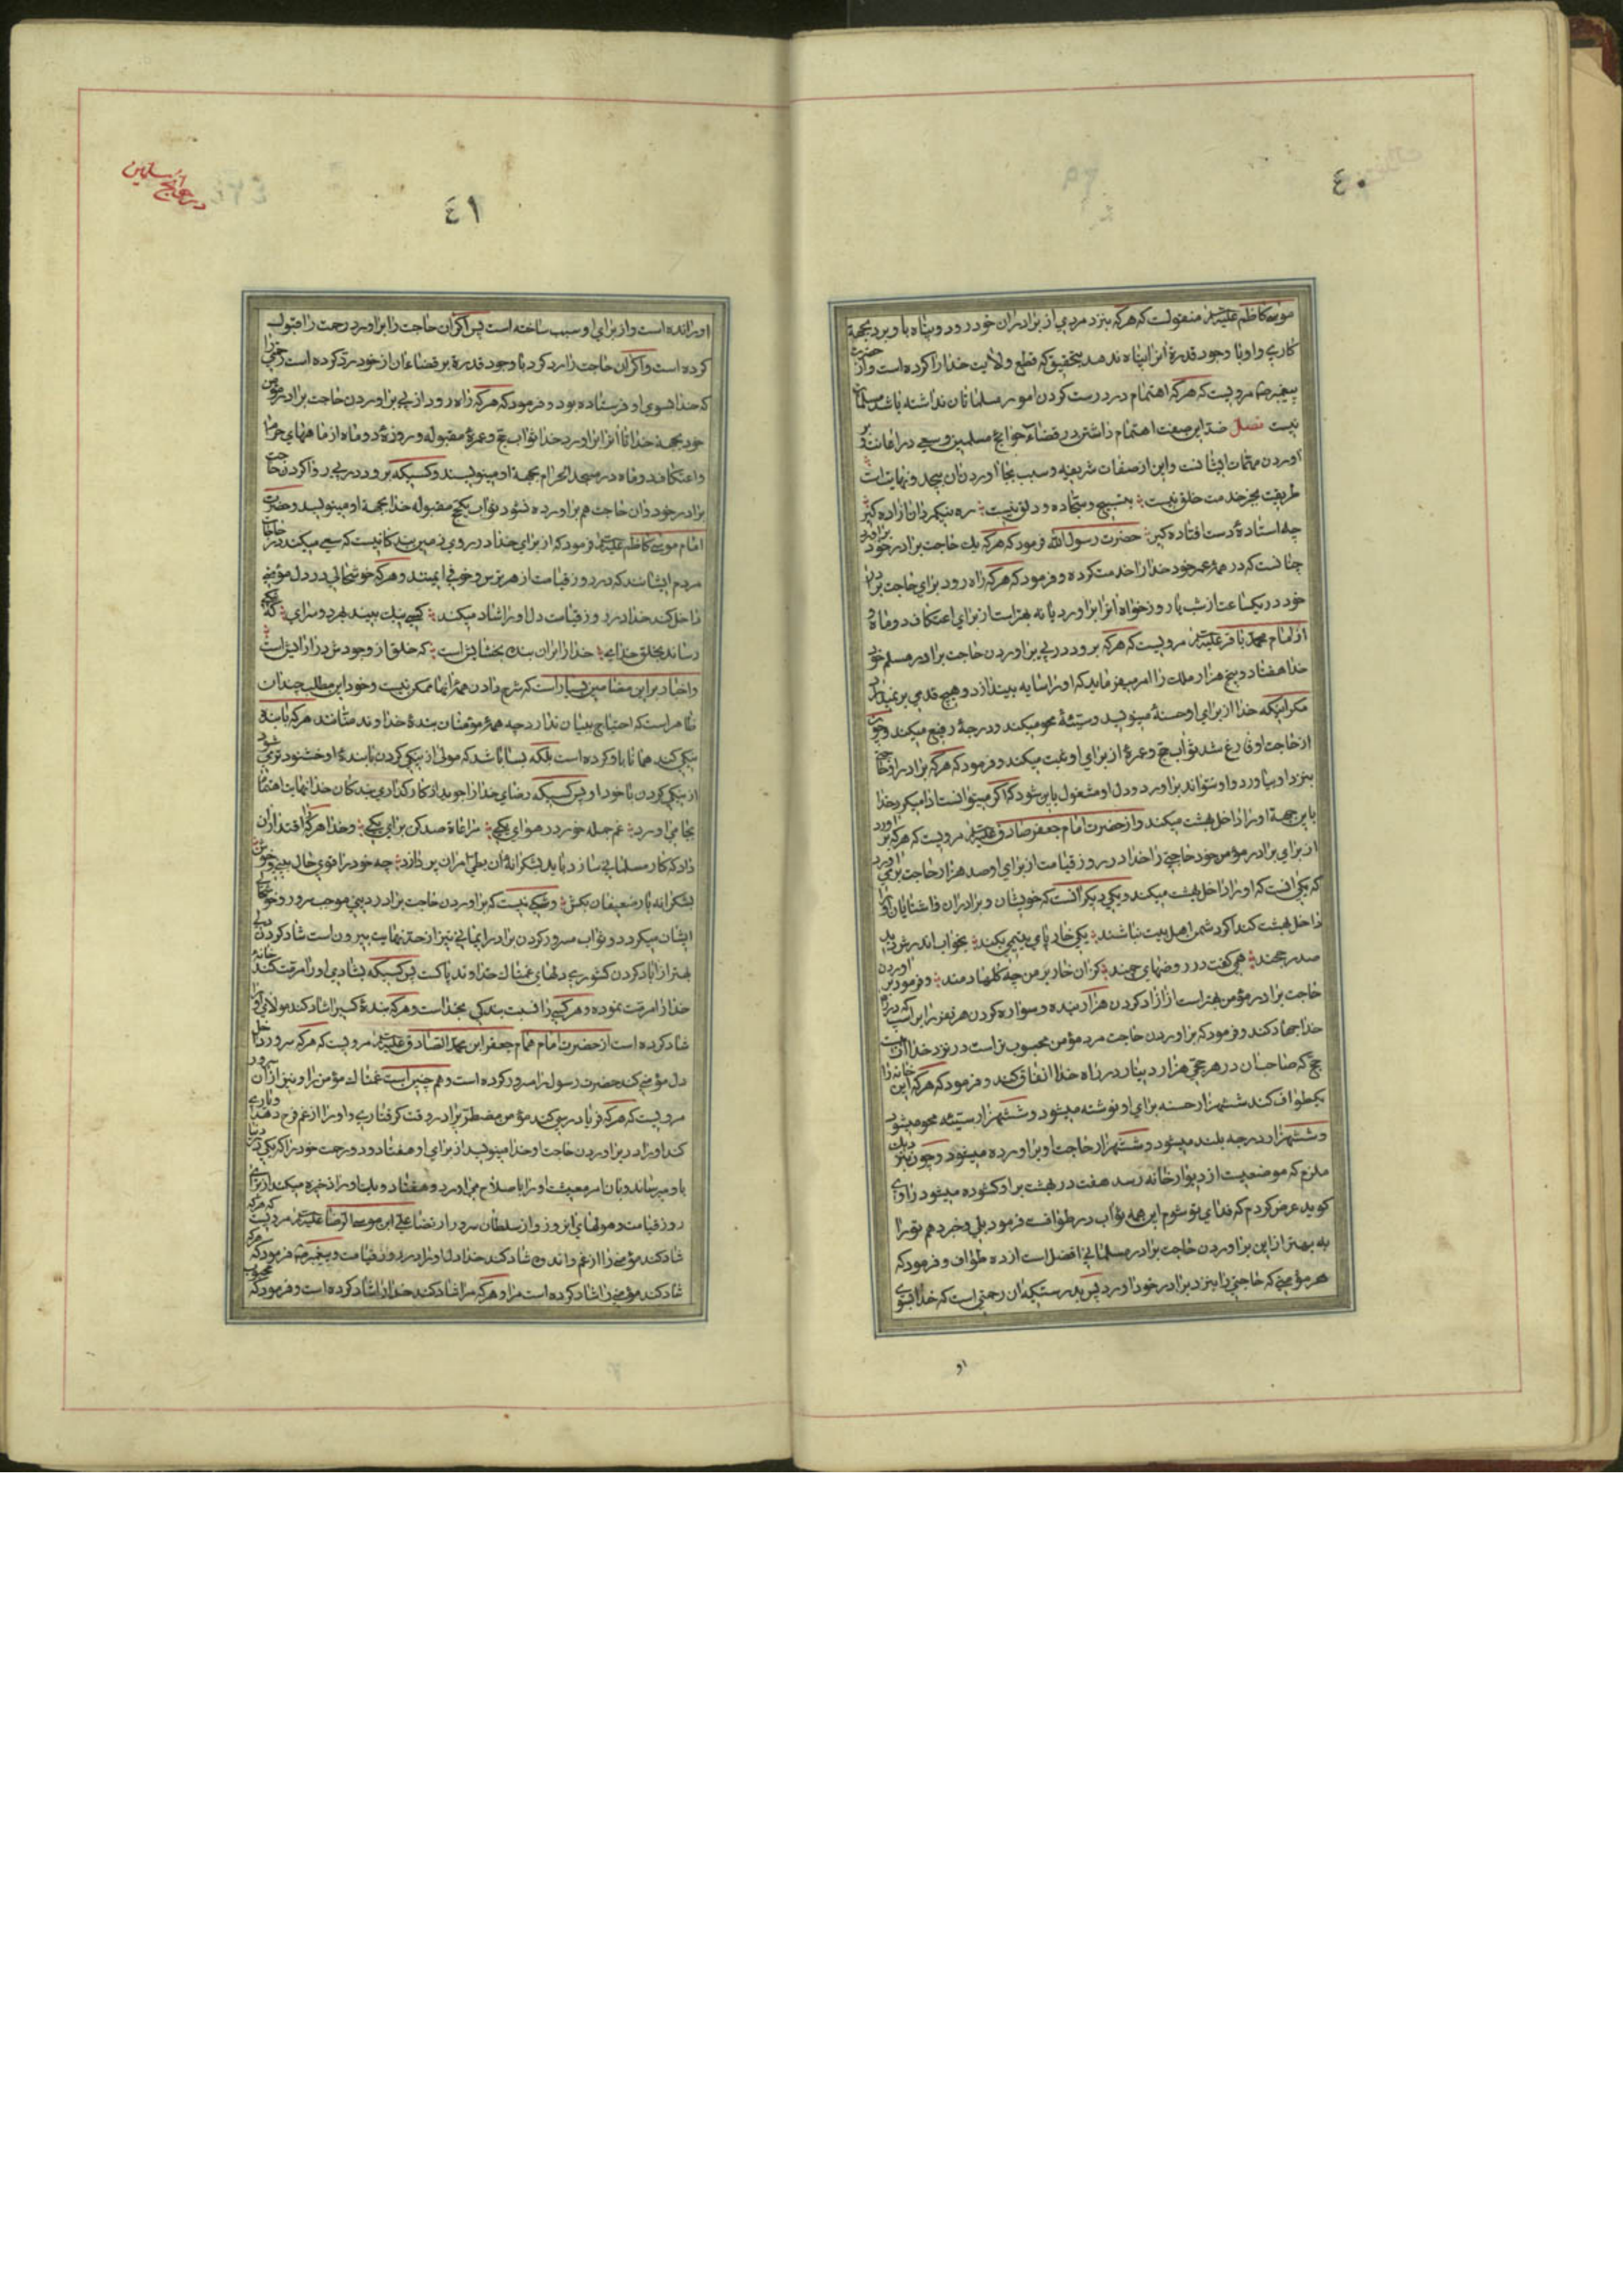 ٤٠
موسی کاظم علیه السلام منقولست که هر که بنزد مردمی از برادران خود رود و پناه باو برد بجهة
کاری و او با وجود قدرة انرا پناه ندهد بتحقیق که قطع ولایت خدا را کرده است و از حضرت
پیغمبر ص مرویست که هر که اهتمام در درست کردن امور مسلمانان نداشته باشد مسلمان
نیست فصل ضد این صفت اهتمام داشتن در قضاء حوائج مسلمین و سعی در اعانت و بر
اوردن مهمّات ایشانست و این از صفات شریفه و سبب بجا اوردن ان بیحد و نهایت است
طریقت بجز خدمت خلق نیست بتسبیح و سجّاده و دلق نیست ره نیکمردان ازاده کیر
چه استادهٔ دست افتاده کیر حضرت رسول الله فرمود که هر که یك حاجت برادر خود براورد
چنانست که در همهٔ عمر خود خدا را خدمت کرده و فرمود که هر که راه رود برای حاجت برادر
خود در یکساعت از شب یا روز خواه انرا براورد یا نه بهتر است از برای او از اعتکاف دو ماه و
از امام محمد باقر علیه السلام مرویست که هر که برود در پی براوردن حاجت برادر مسلم خود
خدا هفتاد و پنج هزار ملك را امر میفرماید که او را سایه بیندازد و هیچ قدمی بر نمیدارد
مکر اینکه خدا از برای او حسنهٔ مینویسد و سیّئهٔ محو میکند و درجهٔ رفیع میکند و چون
از حاجت او فارغ شد ثواب حج و عمرهٔ از برای او ثبت میکند و فرمود که هر که برادر او حاجتی
بنزد او بیاورد و او نتواند براورد و دل او مشغول باین شود که اگر میتوانست ادا میکرد خدا
باین جهة او را داخل بهشت میکند و از حضرت امام جعفر صادق علیه السلام مرویست که هر که بر اورد
از برای برادر مؤمن خود حاجتی را خدا در روز قیامت از برای او صد هزار حاجت بر می اورد
که یکی انست که او را داخل بهشت میکند و یکی دیکر انست که خویشان و برادران و اشنایان او را
داخل بهشت کند اکر دشمن اهل بیت نباشند یکی خار پای یتیمی بکند بخواب اندرش دید
صدر خجند همی کفت و در روضهای چمید کزان خار بر من چه کلها دمید و فرمود بر اوردن
حاجت برادر مؤمن بهتر است از ازاد کردن هزار بنده و سواره کردن هزار نفر را بر اسب که در راه
خدا جهاد کند و فرمود که براوردن حاجت مرد مؤمن محبوب تر است در نزد خدا از بیست
حج که صاحبان در هر حجّی هزار دینار در راه خدا انفاق کند و فرمود که هر که این خانه را
یکطواف کند ششهزار حسنه برای او نوشته میشود و ششهزار سیّئه محو میشود
و ششهزار درجه بلند میشود و ششهزار حاجت او براورده میشود و چون بنزدیك
ملتزم که موضعیست از دیوار خانه رسد هفت در بهشت بر او کشوده میشود راوی
کوید عرض کردم که فدای تو شوم این همه ثواب در طوافست فرمود بلی و خبر دهم تو را
به بهتر از این براوردن حاجت برادر مسلمانی افضل است از ده طواف و فرمود که
هر مؤمنی که حاجتی را بنزد برادر خود اورد پس بدرستیکه ان رحمتی است که خدا بسوی
او
در حوائج مسلمین
٤١
او رانده است و از برای او سبب ساخته است پس اکر ان حاجت را براورد رحمت را قبول
کرده است و اکر ان حاجت را رد کرد با وجود قدرة بر قضاء ان از خود رد کرده است رحمتی را
که خدا بسوی او فرستاده بود و فرمود که هر که راه رود از پی براوردن حاجت برادر مؤمن
خود بجهة خدا تا انرا براورد خدا ثواب حج و عمرهٔ مقبوله و روزهٔ دو ماه از ماههای حرام
و اعتکاف دو ماه در مسجد الحرام بجهة او مینویسند و کسیکه برود در پی روا کردن حاجت
برادر خود و ان حاجت هم براورده نشود ثواب یکحج مقبوله خدا بجهة او مینویسد و حضرت
امام موسی کاظم علیه السلام فرمود که از برای خدا در روی زمین بندکانیست که سعی میکنند در حاجات
مردم ایشانند که در روز قیامت از هر ترس و خوفی ایمنند و هر که خوشحالی در دل مؤمنی
داخل کند خدا در روز قیامت دل او را شاد میکند کسی نیك بیند بهر دو سرای که نیکی
رساند بخلق خدای خدا را بر ان بنده بخشایش است که خلق از وجودش در اسایش است
و اخبار بر این مضامین بسیار است که شرح دادن همهٔ انها ممکن نیست و خود این مطلب چندان
ظاهر است که احتیاج ببیان ندارد چه همهٔ مؤمنان بندهٔ خداوند منّانند هر که با بنده
نیکی کند همانا باو کرده است بلکه بسا باشد که مولی از نیکی کردن با بندهٔ او خشنود تر می شود
از نیکی کردن با خود او پس کسیکه رضای خدا را جوید از کارکذاری بندکان خدا نهایت اهتمام
بجا می اورد غم جمله خور در هوای یکی مراعاة صد کن برای یکی و خدا هر که را اقتدار ان
داد که کار مسلمانی سازد باید بشکرانهٔ ان بطی امر ان پردازد چه خود را قوی حال بینی و خوش
بشکرانه بار ضعیفان بکش و شکی نیست که براوردن حاجت برادر دینی موجب سرور و خوشحالی
ایشان میکردد و ثواب سرور کردن برادر ایمانی نیز از حد نهایت بیرون است شاد کردن دلی
بهتر از اباد کردن کشوری دلهای غمناك خداوند پاکست پس کسیکه بشادی او را مرمّت کند خانهٔ
خدا را مرمت نموده و هر کسی را نسبت بندکی بخداست و هر که بندهٔ کسی را شاد کند مولای او را
شاد کرده است از حضرت امام همام جعفر ابن محمد الصّادق علیه السلام مرویست که هر که سرور داخل
دل مؤمنی کند حضرت رسول را مسرور کرده است و هم چنین است غمناك مؤمن را و نیز از ان سرور
مرویست که هر که فریاد رسی کند مؤمن مضطر برادر در وقت کرفتاری و او را از غم فرح دهد و یاری
کند او را در براوردن حاجت او خدا مینویسد از برای او هفتاد و دو رحمت خود را که یکی در دنیا
باو میرساند و بان امر معیشت او را باصلاح می اورد و هفتاد و یك او را ذخیره میکند از برای
روز قیامت و هولهای انروز و از سلطان سریر ارتضا علی ابن موسی الرضا علیه السلام مرویست که هر که
شاد کند مؤمنی را از غم و اندوه شاد کند خدا دل او را در روز قیامت و پیغمبر ص فرمود که هر که
شاد کند مؤمنی را شاد کرده است مرا و هر که مرا شاد کند خدا را شاد کرده است و فرمود که محبوب